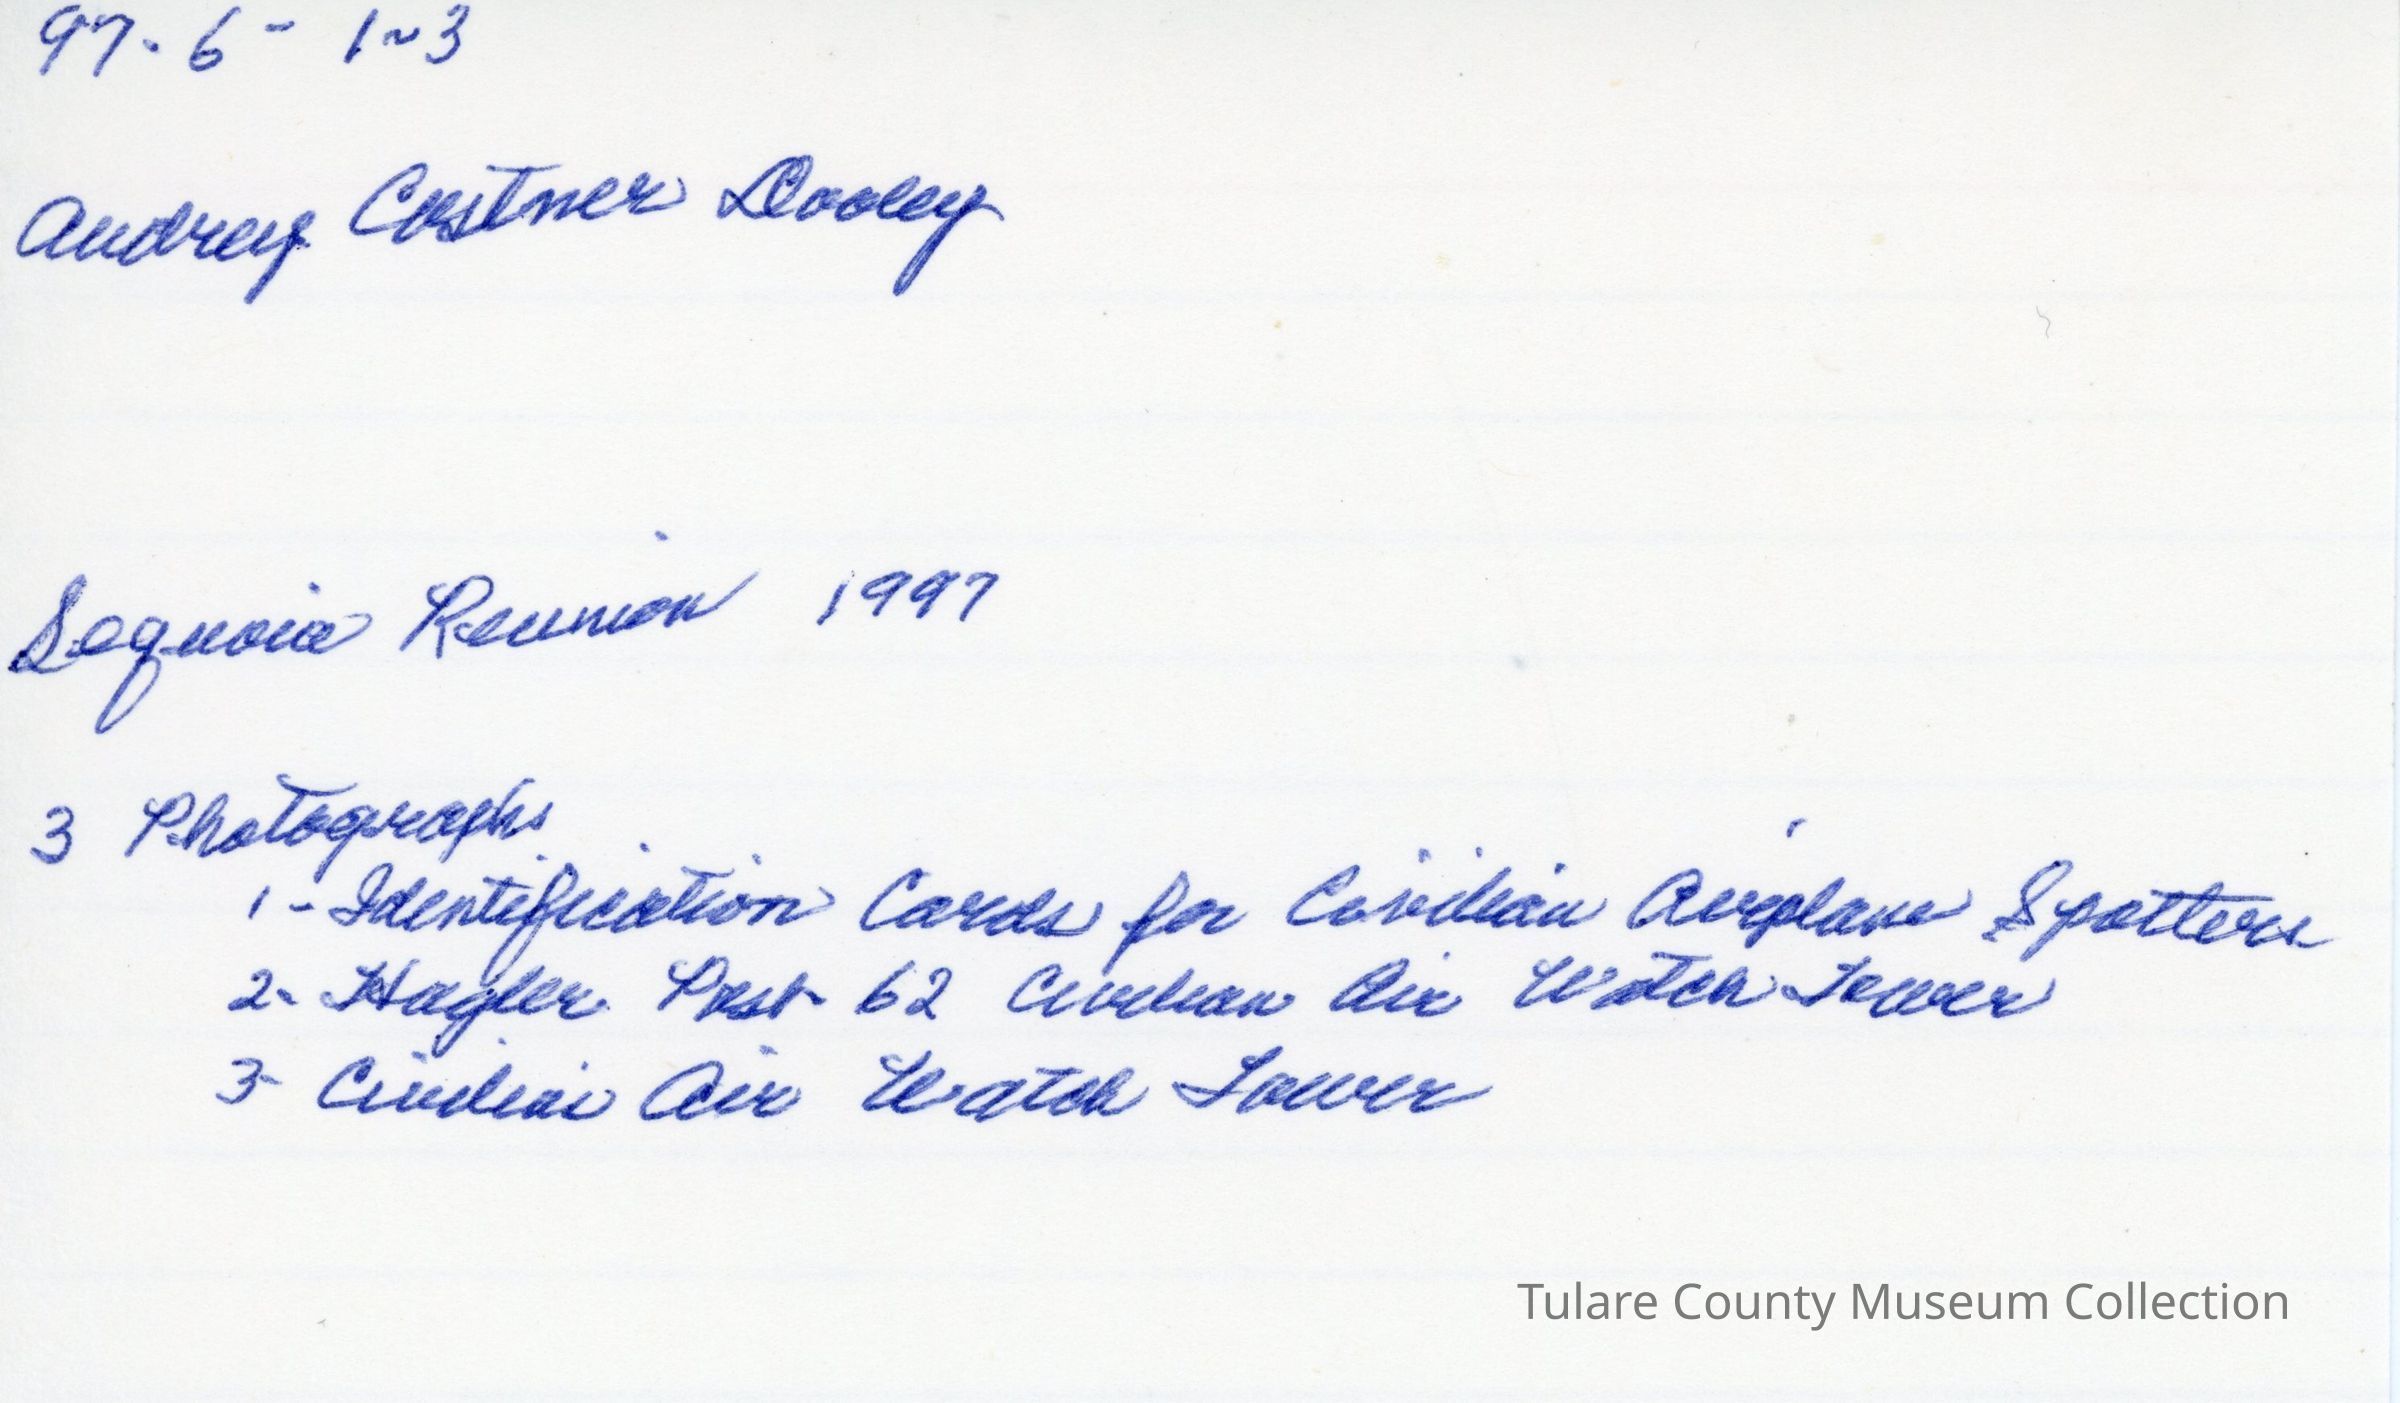 97-6- 1~3
Audrey Costner Dooley
Sequoia Reunion 1997
3 Photographs
1- Identification Cards for Civilian Airplane Spotters
2- Hagler Post 62 Civilian Air Watch Tower
3- Civilian Air Watch Tower
Tulare County Museum Collection